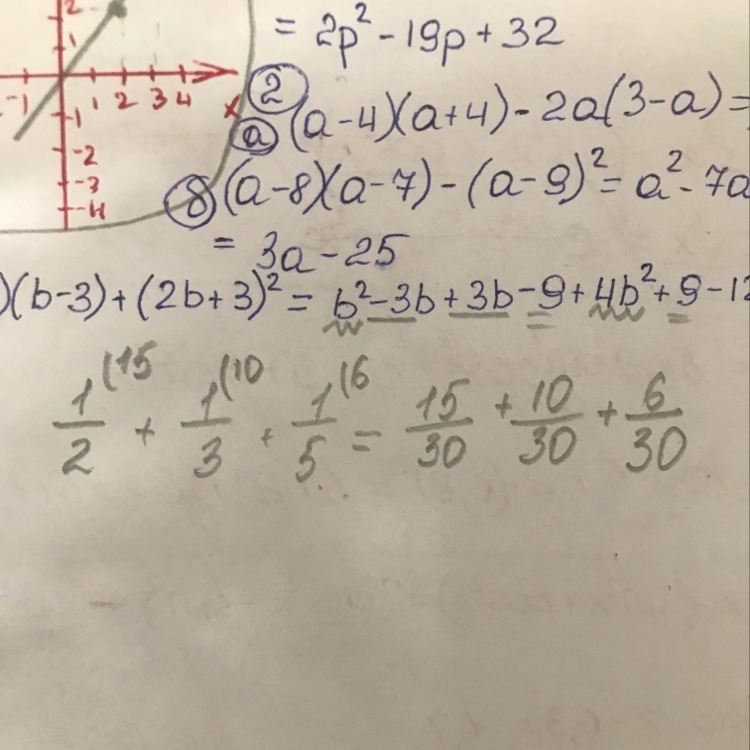 2
1
= 2p² - 19p + 32
-1 1 2 3 4 x
-1
-2
-3
-4
② 
ⓐ (a-4)(a+4) - 2a(3-a) =
⑧ (a-8)(a-7) - (a-9)² = a² - 7a
= 3a - 25
)(b-3) + (2b+3)² = b² - 3b + 3b - 9 + 4b² + 9 - 12
1/2 (15 + 1/3 (10 + 1/5 (6 = 15/30 + 10/30 + 6/30